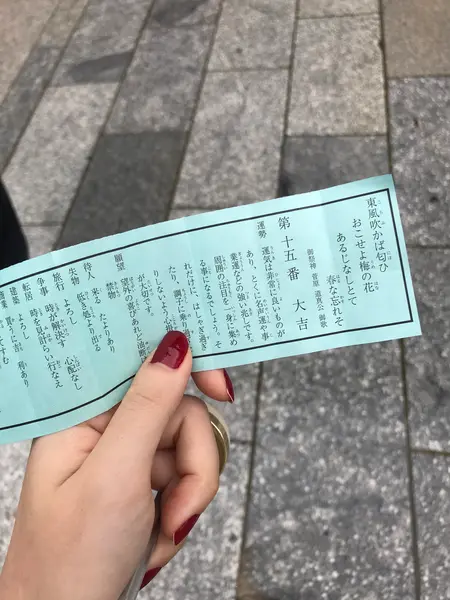 東風吹かば匂ひ
おこせよ梅の花
あるじなしとて
春な忘れそ
御祭神 菅原道真公 御歌
第十五番 大吉
運勢 運気は非常に良いものが
あり、とくに名声運や事
業運などの強い兆しです。
周囲の注目を一身に集め
る事になるでしょう。そ
れだけに、はしゃぎ過ぎ
たり、調子に乗り過
りしないよう
が大切です。
願望 望みの喜びあれど油断
禁物
待人 来る たよりあり
失物 低き処より出る
旅行 よろし 心配なし
争事 時が解決す
転居 時を見計らい行なえ